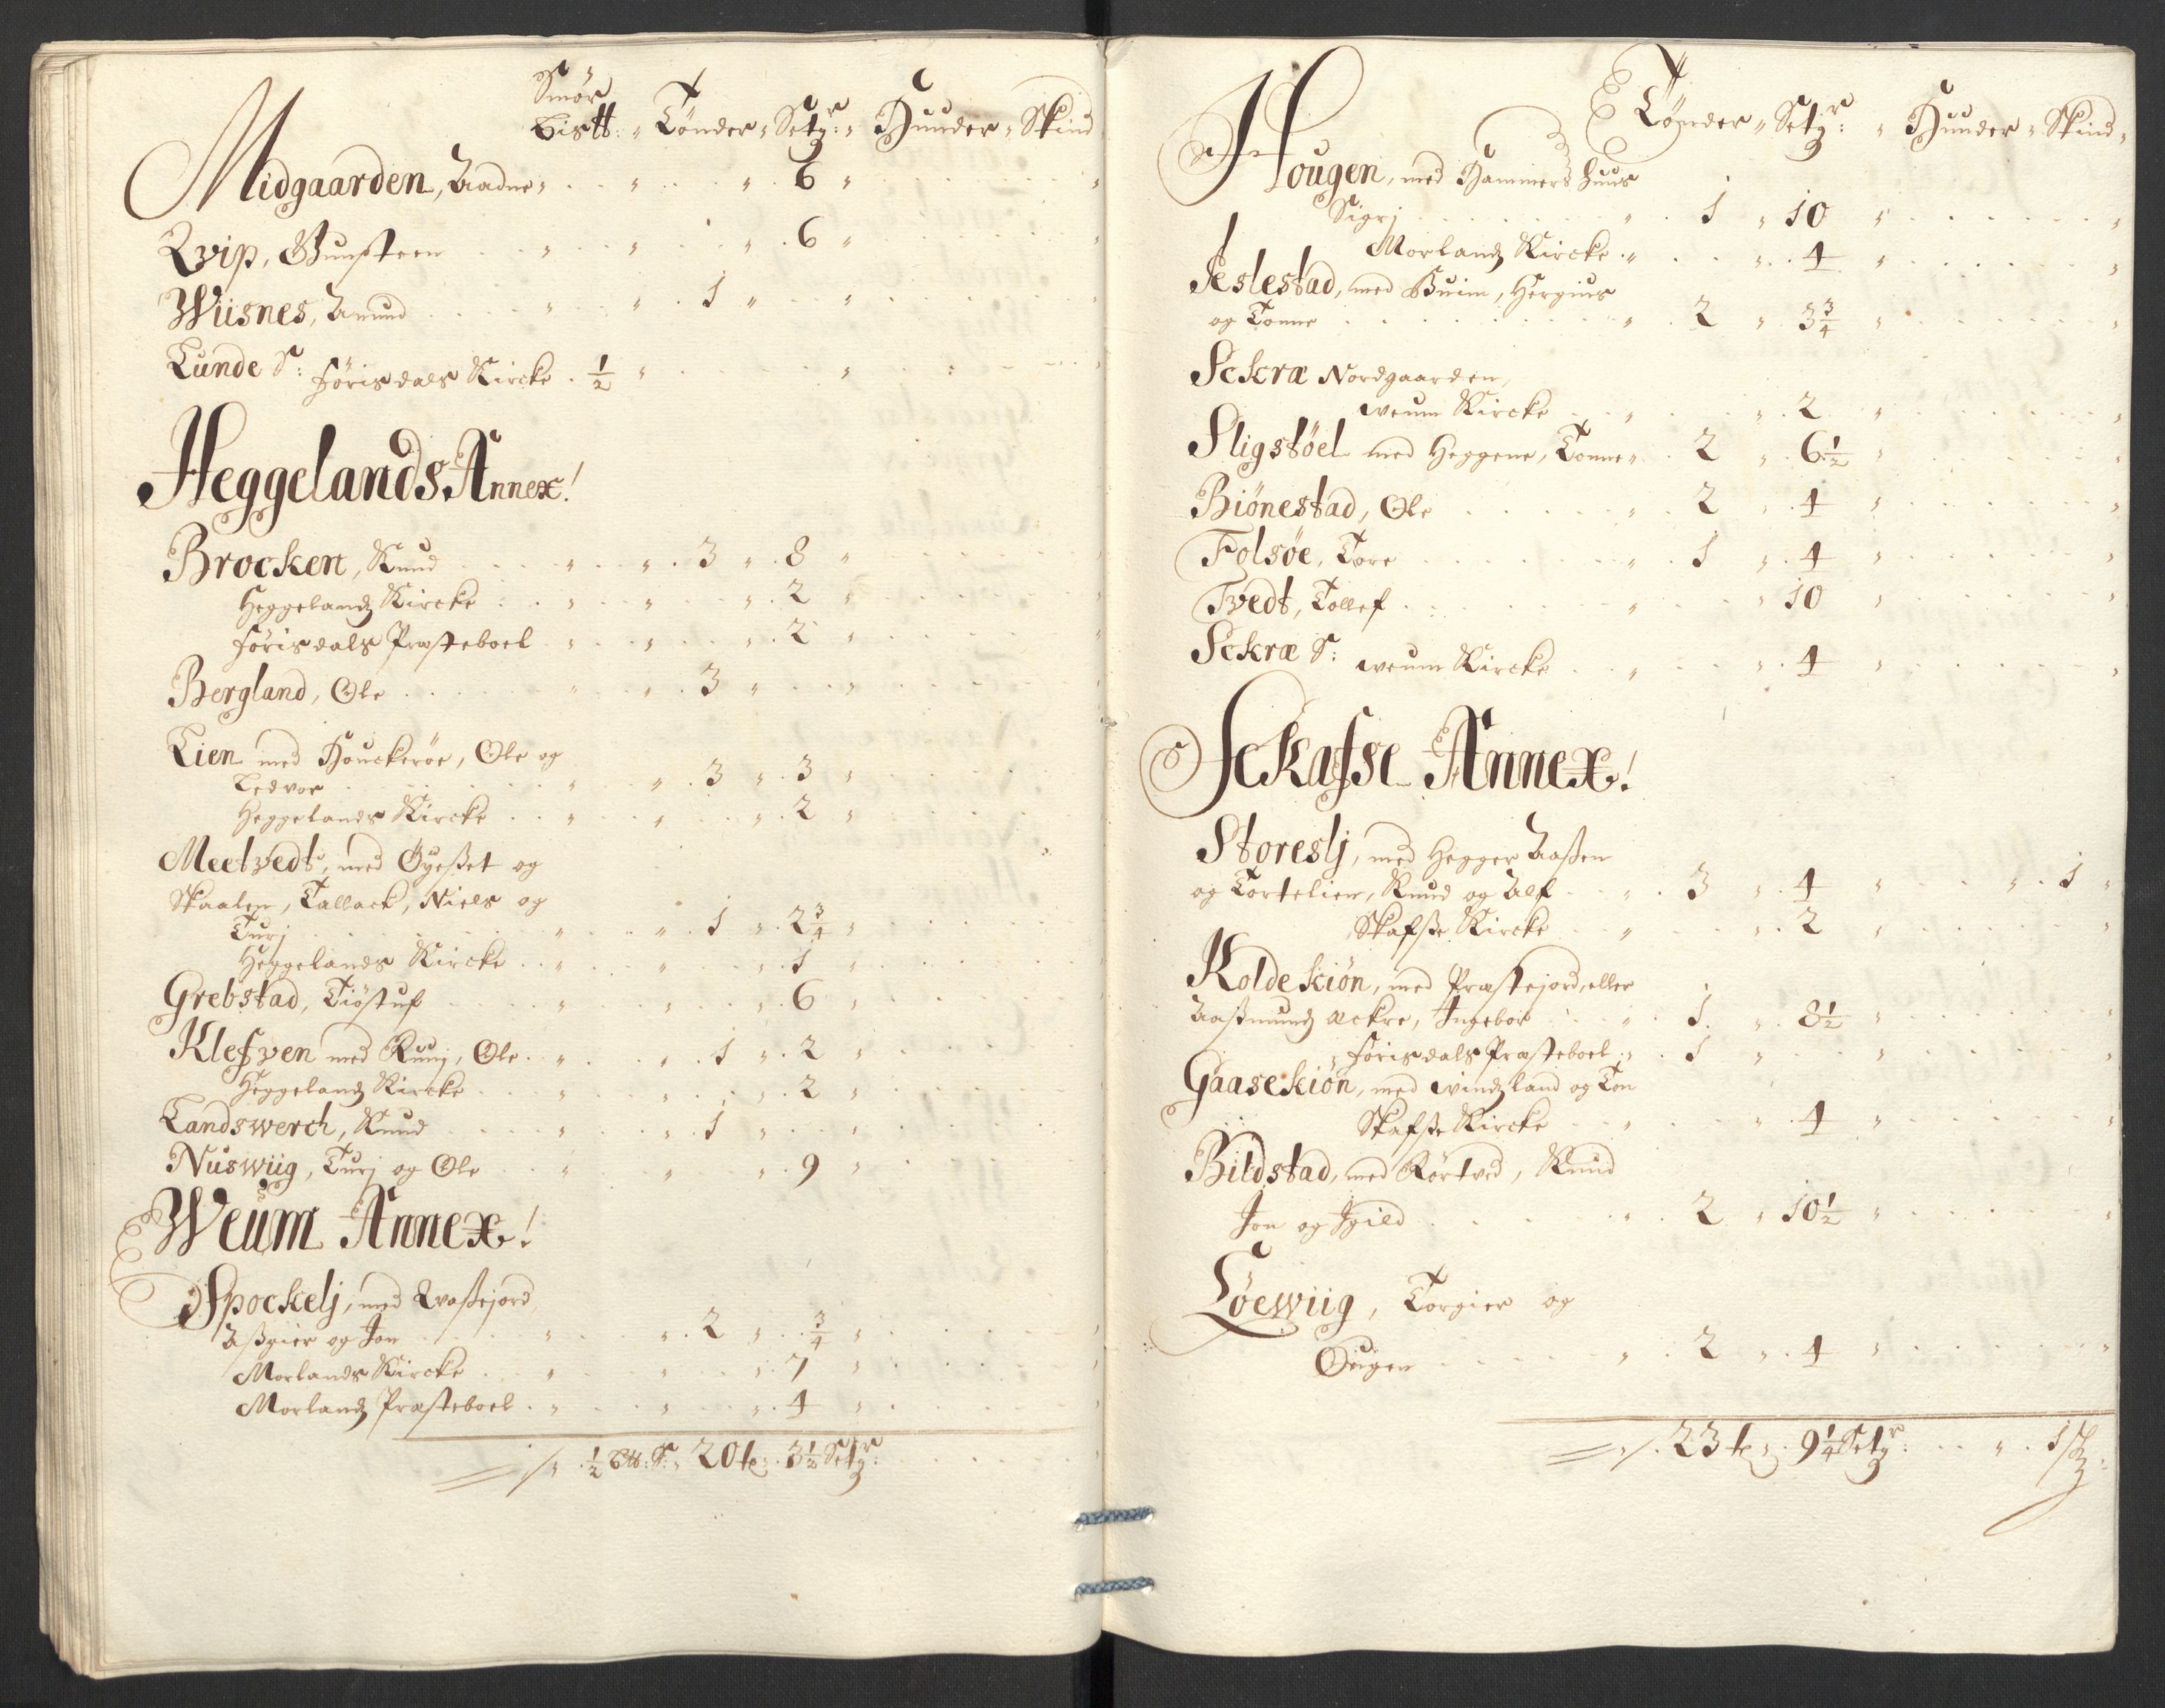 Smör
Bislb: " Tönder " Setz:r " Huuder " Skind
Midgaarden, Aadne " " " 6 "
Qvip, Gunsteen " " " 6 "
Wiisnes, Anund " " 1 " "
Lunde S: Förisdals Kircke . 1/2 " "
Heggelands Annex!
Brocken, Knud " " 3 " 8 "
Heggelandz Kircke " " " 2 "
Förisdals Præsteboel " " " 2 "
Bergland, Ole " " 3 " "
Lien med Houckeröe, Ole og
Ledvor " " 3 " 3 "
Heggelands Kircke " " " 2 "
Meetvedt, med Öyesset og
Skaalen, Tallack, Niels og
Turj " " 1 " 2 3/4 "
Heggelands Kircke " " " 1 "
Grebstad, Tiöstuf " " " 6 "
Klefven med Ruuj, Ole " " 1 " 2 "
Heggelandz Kircke " " " 2 "
Landswerch, Knud " " 1 " "
Nuswiig, Turj og Ole " " " 9 "
Weum Annex!
Spockelj, med Qvassejord,
Assgier og Jon " " 2 " 3/4 "
Morlands Kircke " " " 7 "
Morlandz Præsteboel " " " 4 "
1/2 Blb: S: 20 te: 3 1/2 Setz:r
Tönder " Setz:r " Huuder " Skind "
Hougen, med Hammers huus
Sigrj " 1 " 10 " "
Morlandz Kircke " " 4 " "
Seslestad, med Buim, Hergius
og Tonne " 2 " 3 3/4 " "
Sckræ Nordgaarden,
weum Kircke " " 2 " "
Sligstöel med Heggene, Tonne " 2 " 6 1/2 " "
Biönestad, Ole " 2 " 4 " "
Folsöe, Tore " 1 " 4 " "
Tvedt, Tollef " " 10 " "
Sckræ S: weum Kircke " " 4 " "
Sckafse Annex!
Storeslj, med Hegger Aassen
og Tortelien, Knud og Alf " 3 " 4 " " 1 "
Skafsse Kircke " " 2 " "
Koldeskiön, med Præstejord, eller
Aassmundz Ackre, Ingebor " 1 " 8 1/2 " "
Förisdals Præsteboel " 1 " " "
Gaaseskiön, med windzland og Ton
Skafsse Kircke " " 4 " "
Bildstad, med Rörtved, Knud
Jon og Igild " 2 " 10 1/2 " "
Löewiig, Torgier og
Ougen " 2 " 4 " "
23 te 9 1/4 Setz:r " 1 sk: